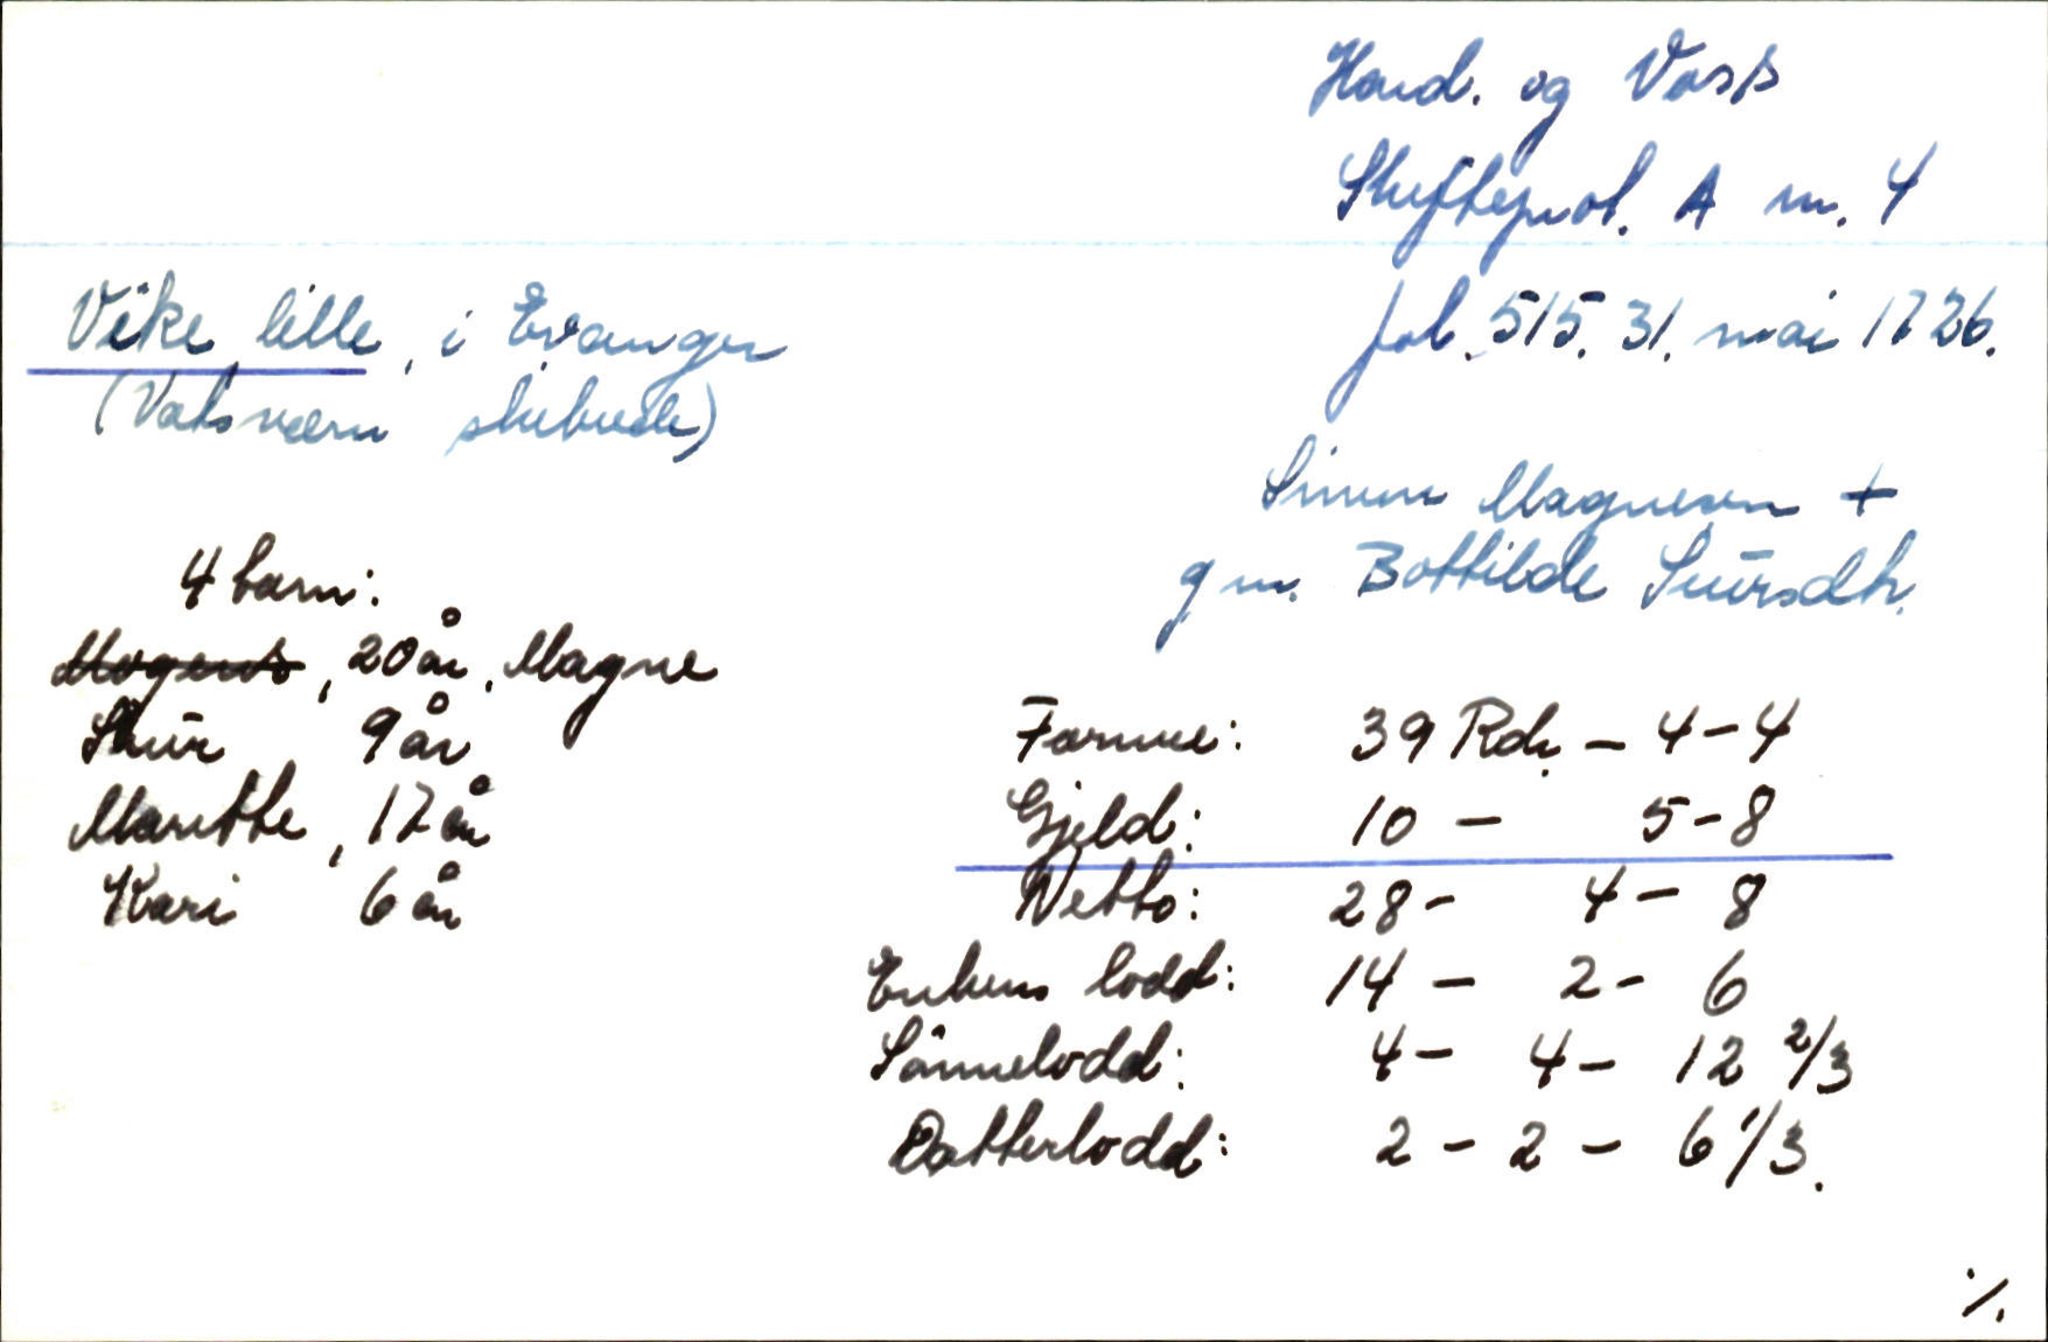 Hard. og Voss
Skifteprot. A nr. 4
fol. 515. 31. mai 1726.
Vike lille, i Evanger
(Vatsværn skibrede)
Simen Magnesen +
g m. Bottilde Siursdtr.
4 barn:
Mogens, 20 år, Magne
Siur 9 år
Maritte, 17 år
Kari 6 år
Formue: 39 Rdr. - 4 - 4
Gjeld: 10 - 5 - 8
Netto: 28 - 4 - 8
Enkens lodd: 14 - 2 - 6
Sønnelodd: 4 - 4 - 12 2/3
Datterlodd: 2 - 2 - 6 1/3.
./.